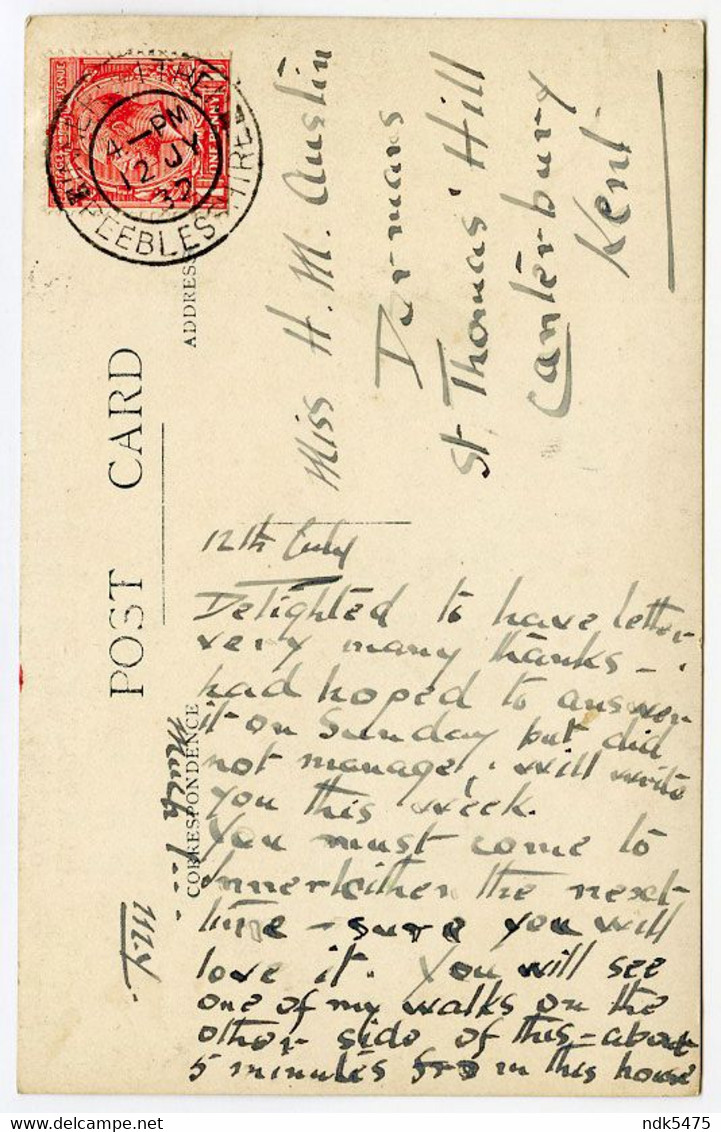 POST CARD
CORRESPONDENCE
ADDRESS
4 - PM
12 JY
32
PEEBLES-SHIRE
Miss H. M. Austin
Dormans
St. Thomas' Hill
Canterbury
Kent
12th July
Delighted to have letter
very many thanks -
had hoped to answer
it on Sunday but did
not manage, will write
you this week.
You must come to
Innerleithen the next
time - sure you will
love it. You will see
one of my walks on the
other side of this - about
5 minutes from this house
Much
ndk5475